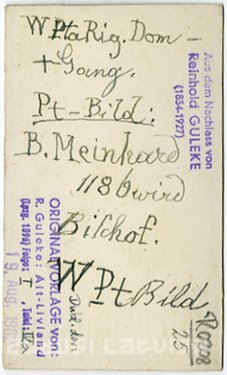 W Pta Rig. Dom –
+ Gang.
Pt-Bild:
B. Meinhard
1186 wird
Bischof.
W Pt Bild
Aus dem Nachlass von
Reinhold GULEKE
(1834-1927)
ORIGINALVORLAGE von:
R. Guleke: Alt-Livland
(Lpzg. 1896) Folge: I, Tafel:
19. AUG. 198
R0208
25